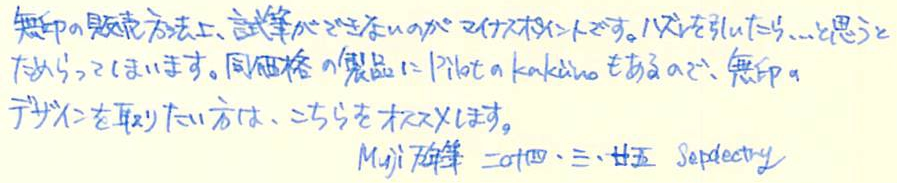 無印の販売方法上、試筆ができないのがマイナスポイントです。ハズレを引いたら...と思うと
ためらってしまいます。同価格の製品にPilotのkakünoもあるので、無印の
デザインを取りたい方は、こちらをオススメします。
Muji 万年筆 二〇廿四・三・廿五